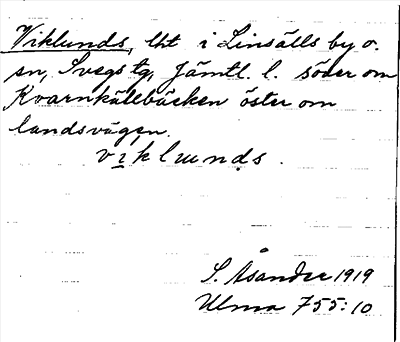 Viklunds, lht i Linsälls by o.
sn, Svegs tg, Jämtl. l. söder om
Kvarnkällebäcken öster om
landsvägen.
viklunds.
S. Åsander 1919
Ulma 755:10